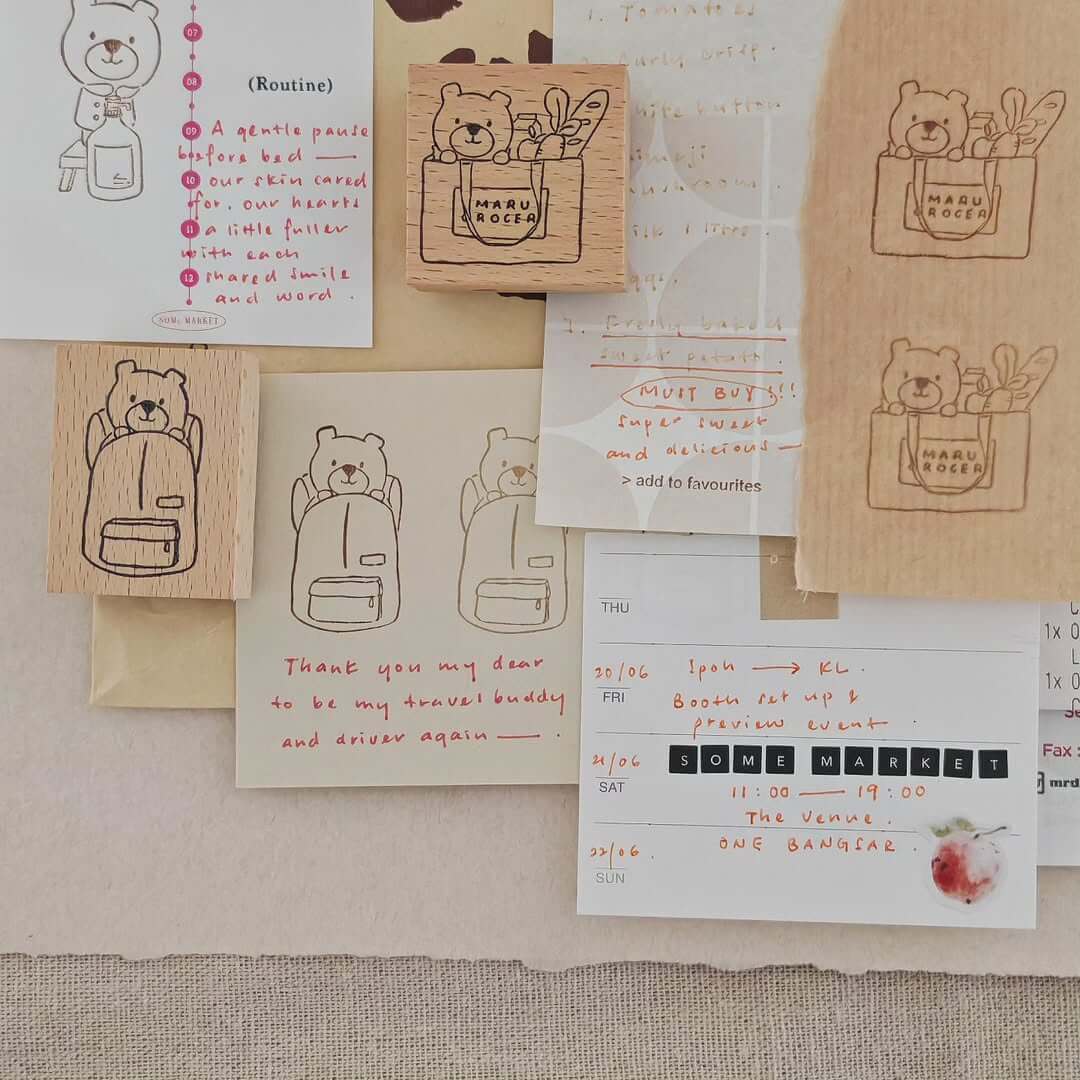 07
08
(Routine)
09 A gentle pause
before bed —
10 our skin cared
for, our hearts
11 a little fuller
with each
12 shared smile
and word.
SOME MARKET
MARU
GROCER
1. Tomatoes
2. Curly
white button
mushroom.
1 litre.
eggs.
7. Freshly baked
sweet potato.
MUST BUY!!!
super sweet
and delicious —
> add to favourites
MARU
GROCER
MARU
GROCER
Thank you my dear
to be my travel buddy
and driver again —.
THU
20/06 Ipoh → KL.
FRI
Booth set up &
preview event.
21/06 SOME MARKET
SAT
11:00 — 19:00
The Venue.
22/06. ONE BANGSAR.
SUN
1x
1x
Fax :
mrd